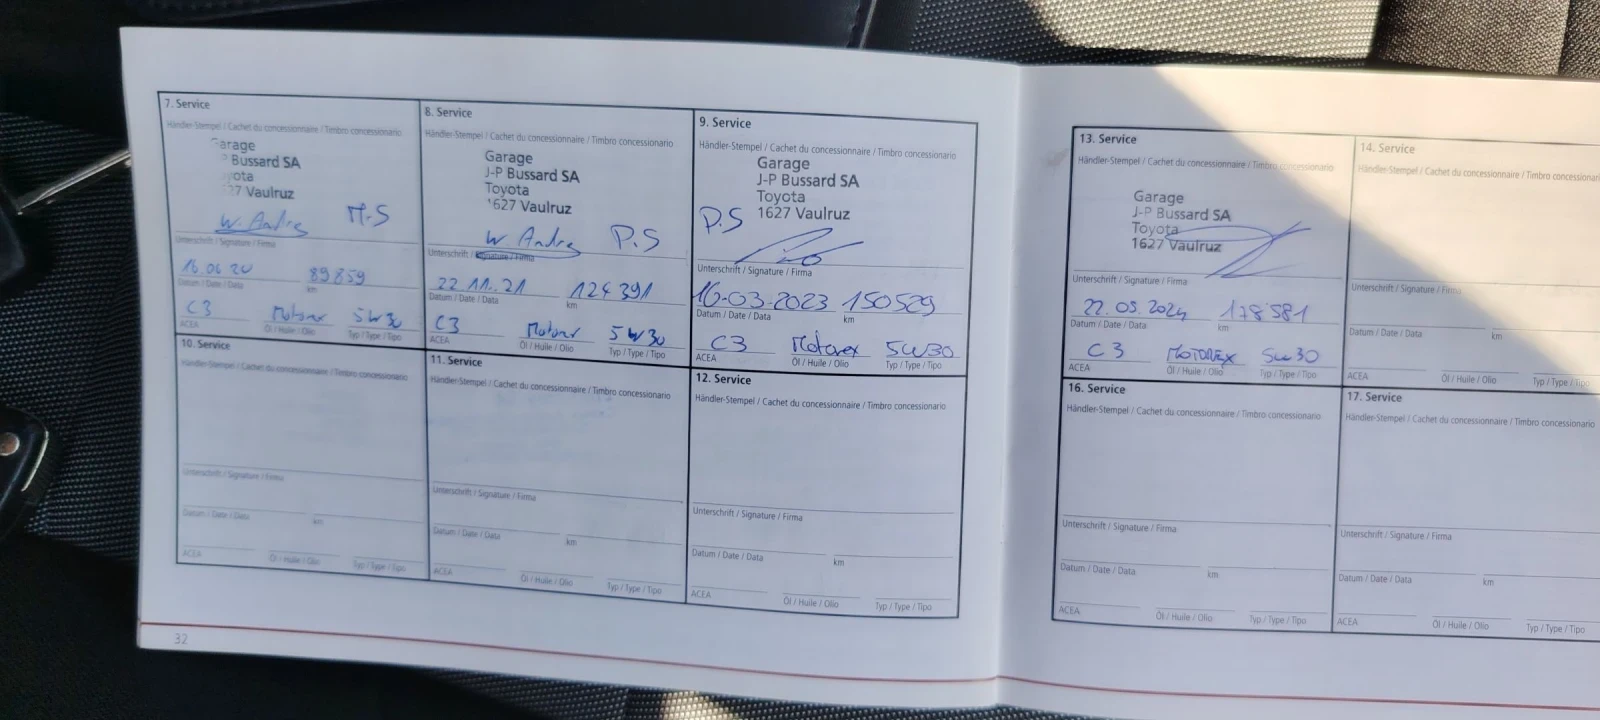 7. Service
Händler-Stempel / Cachet du concessionnaire / Timbro concessionario
Garage
Bussard SA
yota
27 Vaulruz
W. Andrey M-S
Unterschrift / Signature / Firma
16 06 20 89859
Datum / Date / Data km
C3 Motorex 5W30
ACEA Öl / Huile / Olio Typ / Type / Tipo
8. Service
Händler-Stempel / Cachet du concessionnaire / Timbro concessionario
Garage
J-P Bussard SA
Toyota
1627 Vaulruz
W. Andrey P.S
Unterschrift / Signature / Firma
22 11. 21 124 391
Datum / Date / Data km
C3 Motorex 5W30
ACEA Öl / Huile / Olio Typ / Type / Tipo
9. Service
Händler-Stempel / Cachet du concessionnaire / Timbro concessionario
Garage
J-P Bussard SA
Toyota
P.S 1627 Vaulruz
Unterschrift / Signature / Firma
16-03-2023 150529
Datum / Date / Data km
C3 Motorex 5W30
ACEA Öl / Huile / Olio Typ / Type / Tipo
10. Service
Händler-Stempel / Cachet du concessionnaire / Timbro concessionario
Unterschrift / Signature / Firma
Datum / Date / Data km
ACEA Öl / Huile / Olio Typ / Type / Tipo
11. Service
Händler-Stempel / Cachet du concessionnaire / Timbro concessionario
Unterschrift / Signature / Firma
Datum / Date / Data km
ACEA Öl / Huile / Olio Typ / Type / Tipo
12. Service
Händler-Stempel / Cachet du concessionnaire / Timbro concessionario
Unterschrift / Signature / Firma
Datum / Date / Data km
ACEA Öl / Huile / Olio Typ / Type / Tipo
32
13. Service
Händler-Stempel / Cachet du concessionnaire / Timbro concessionario
Garage
J-P Bussard SA
Toyota
1627 Vaulruz
Unterschrift / Signature / Firma
22.05.2024 178'581
Datum / Date / Data km
C3 MOTOREX 5W30
ACEA Öl / Huile / Olio Typ / Type / Tipo
14. Service
Händler-Stempel / Cachet du concessionnaire / Timbro concessionari
Unterschrift / Signature / Firma
Datum / Date / Data km
ACEA Öl / Huile / Olio Typ / Type / Tipo
16. Service
Händler-Stempel / Cachet du concessionnaire / Timbro concessionario
Unterschrift / Signature / Firma
Datum / Date / Data km
ACEA Öl / Huile / Olio Typ / Type / Tipo
17. Service
Händler-Stempel / Cachet du concessionnaire / Timbro concessionario
Unterschrift / Signature / Firma
Datum / Date / Data km
ACEA Öl / Huile / Olio Typ / Type / Tipo